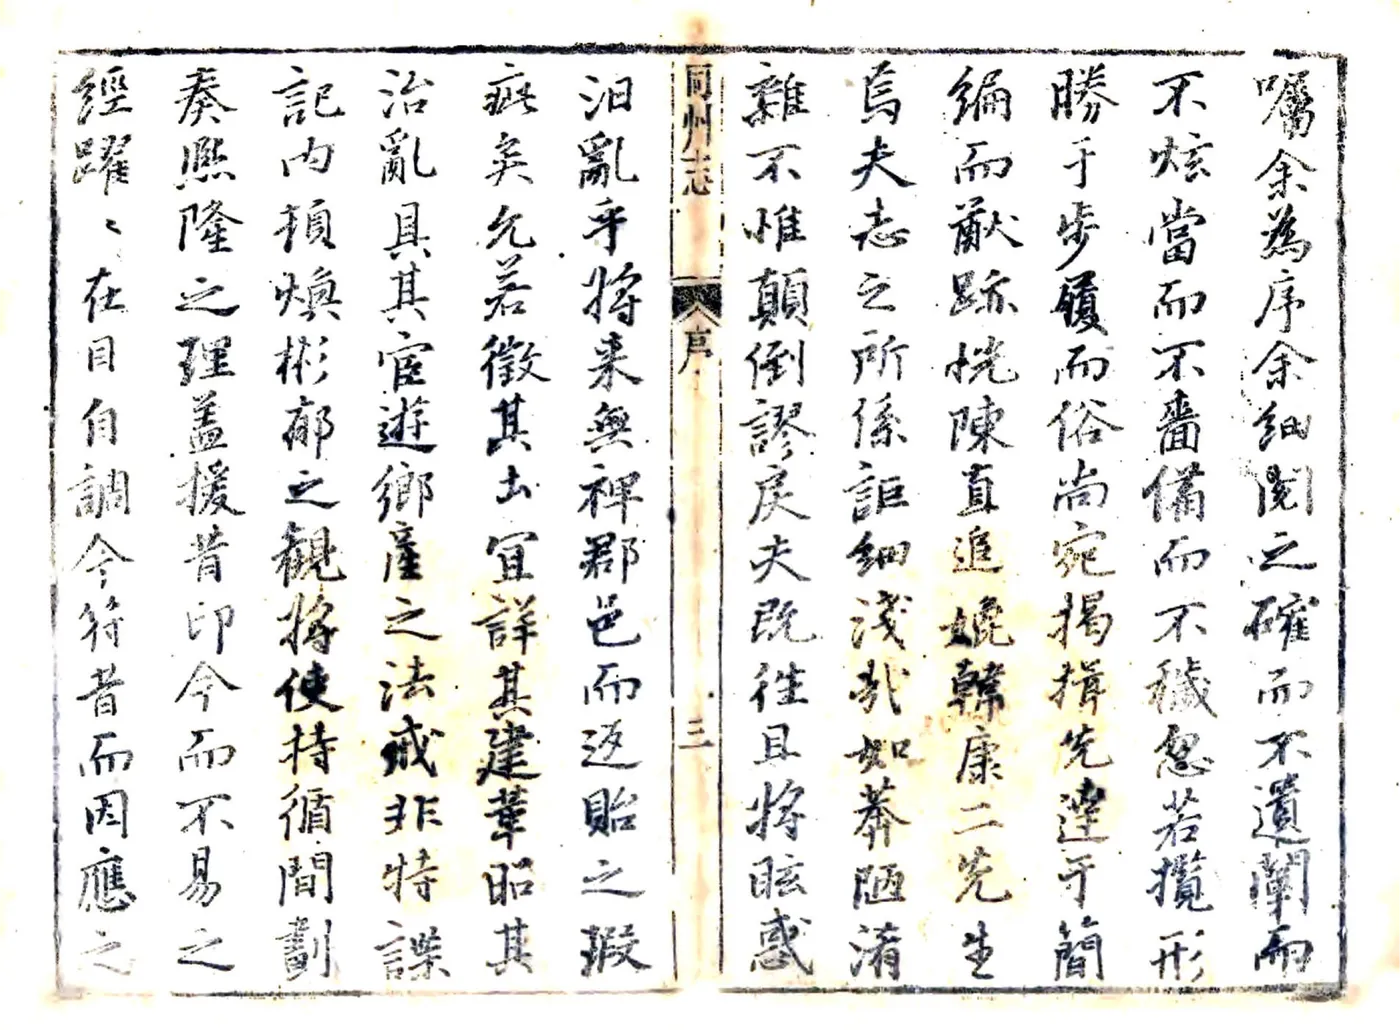 囑余為序余細閱之確而不遺闡而
不炫當而不嗇備而不穢忽若攬形
勝于步履而俗尚宛揭揖先達于簡
編而猷跡恍陳直追媲韓康二先生
焉夫志之所係詎細淺哉如莽陋淆
雜不惟顛倒謬戾夫既往且將眩惑
同州志
序
三
汨亂乎將来無裨郡邑而返貽之瑕
疵矣允若徵其出宜詳其建革昭其
治亂具其宦遊鄉産之法戒非特諜
記內頓煥彬郁之觀將使持循間劃
奏熙隆之理盖援昔印今而不易之
經躍〻在目自調今符昔而因應之